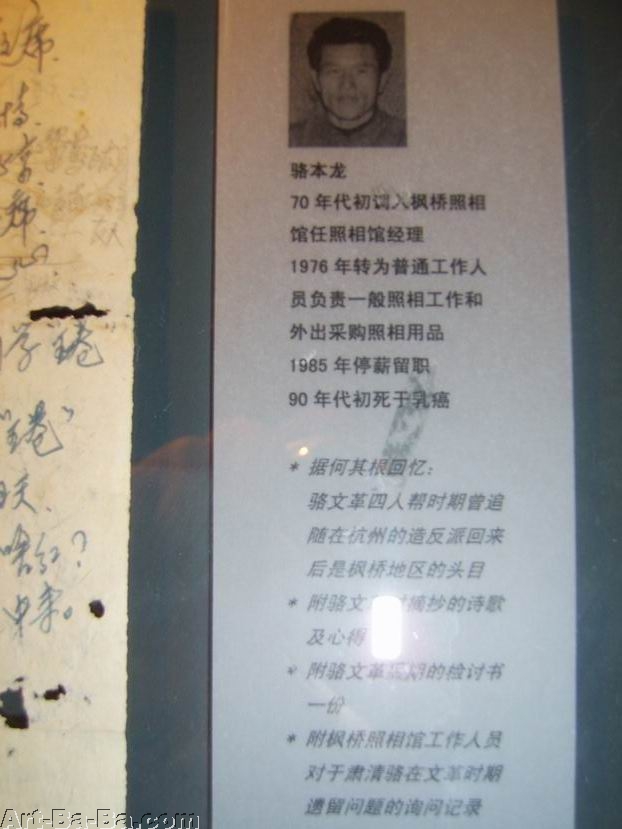 席
学"毛卷"
红?
骆本龙
70 年代初调入枫桥照相
馆任照相馆经理
1976 年转为普通工作人
员负责一般照相工作和
外出采购照相用品
1985 年停薪留职
90 年代初死于乳癌
* 据何其根回忆：
骆文革四人帮时期曾追
随在杭州的造反派回来
后是枫桥地区的头目
* 附骆文 摘抄的诗歌
及心得
* 附骆文革 期的检讨书
一份
* 附枫桥照相馆工作人员
对于肃清骆在文革时期
遗留问题的询问记录
Art-Ba-Ba.com